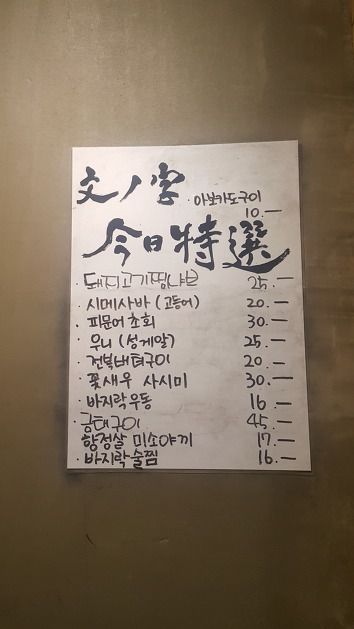 文ノ字 · 아보카도구이
10.—
今日特選
· 돼지고기찜샤브 25.—
· 시메사바 (고등어) 20.—
· 피문어초회 30.—
· 우니 (성게알) 25.—
· 전복버터구이 20.—
· 꽃새우 사시미 30.—
· 바지락우동 16.—
금태구이 45.—
항정살 미소야끼 17.—
· 바지락술찜 16.—